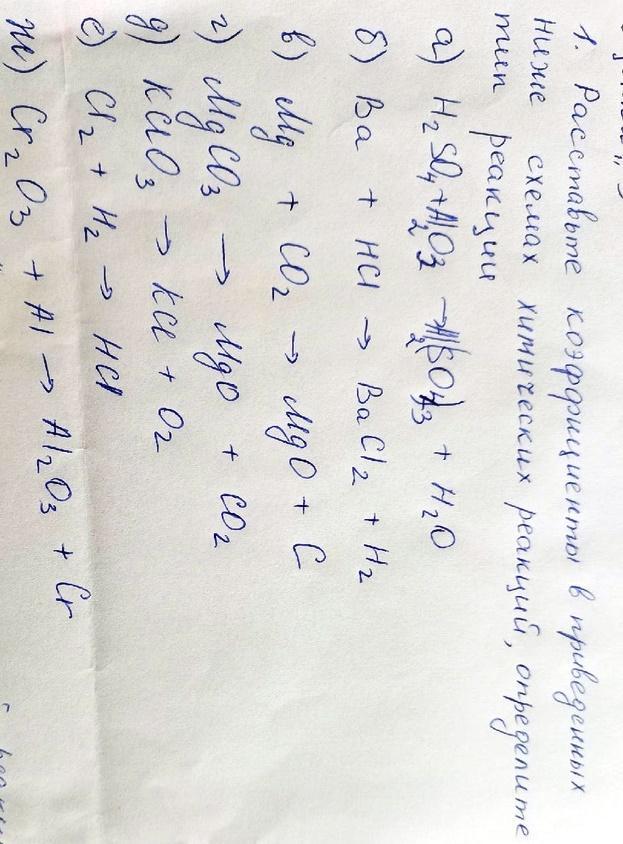 1. Расставьте коэффициенты в приведенных
ниже схемах химических реакций, определите
тип реакции
а) H2SO4 + Al2O3 → Al2(SO4)3 + H2O
б) Ba + HCl → BaCl2 + H2
в) Mg + CO2 → MgO + C
г) MgCO3 → MgO + CO2
д) KClO3 → KCl + O2
е) Cl2 + H2 → HCl
ж) Cr2O3 + Al → Al2O3 + Cr